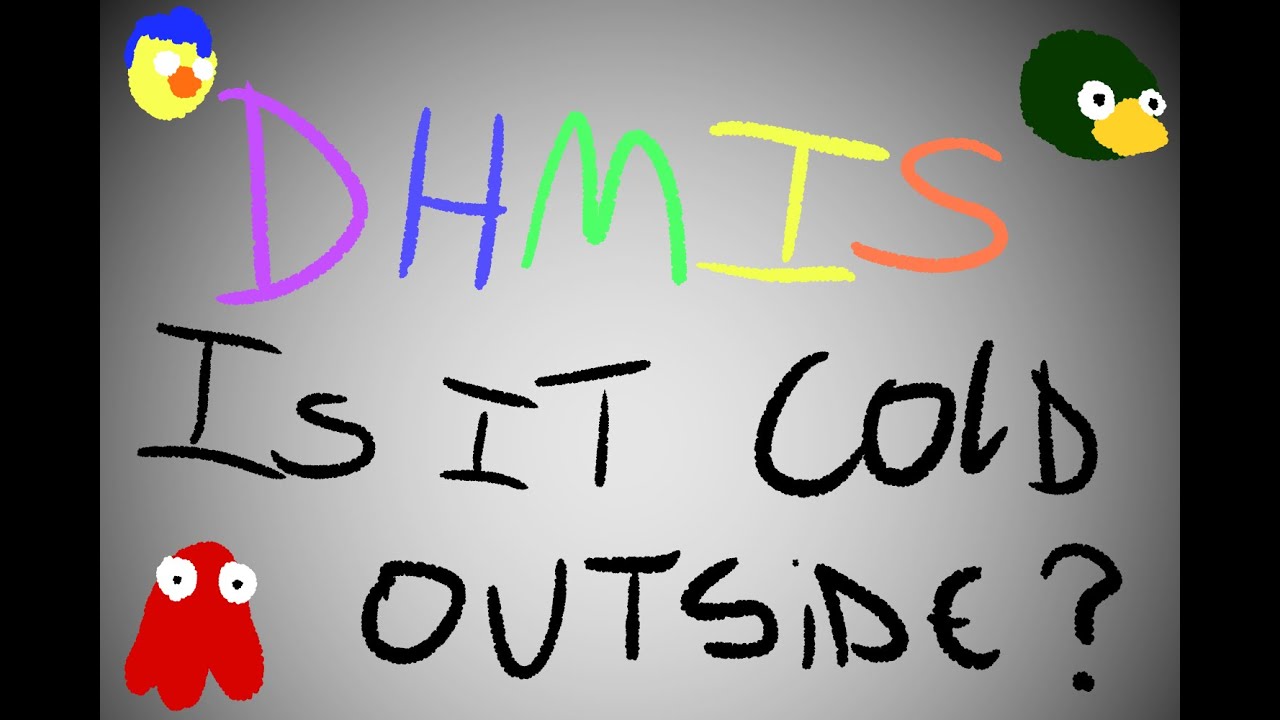 DHMIS
Is IT COlD
OUTSiDE?